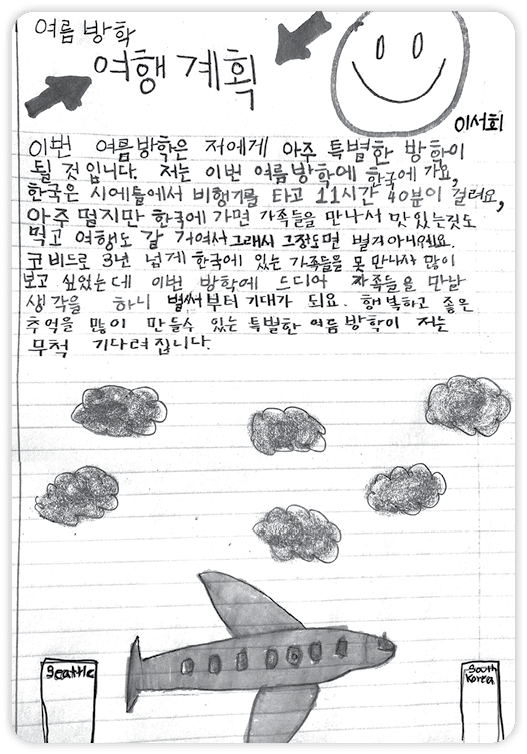 여름 방학
여행 계획
이서희
이번 여름방학은 저에게 아주 특별한 방학이
될 것 입니다. 저는 이번 여름방학에 한국에 가요,
한국은 시에틀에서 비행기를 타고 11시간 40분이 걸려요,
아주 멀지만 한국에 가면 가족들을 만나서 맛있는것도
먹고 여행도 갈 거여서 그래서 그정도면 별거 아니에요.
코비드로 3년 넘게 한국에 있는 가족들을 못 만나서 많이
보고 싶었는데 이번 방학에 드디어 가족들을 만날
생각을 하니 벌써부터 기대가 되요. 행복하고 좋은
추억을 많이 만들수 있는 특별한 여름방학이 저는
무척 기다려집니다.
Seattle
South
Korea